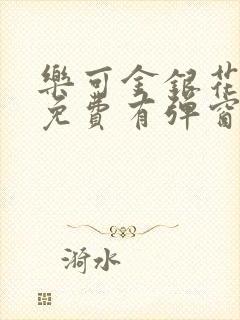 樂可金銀花
免費有彈窗
漪水